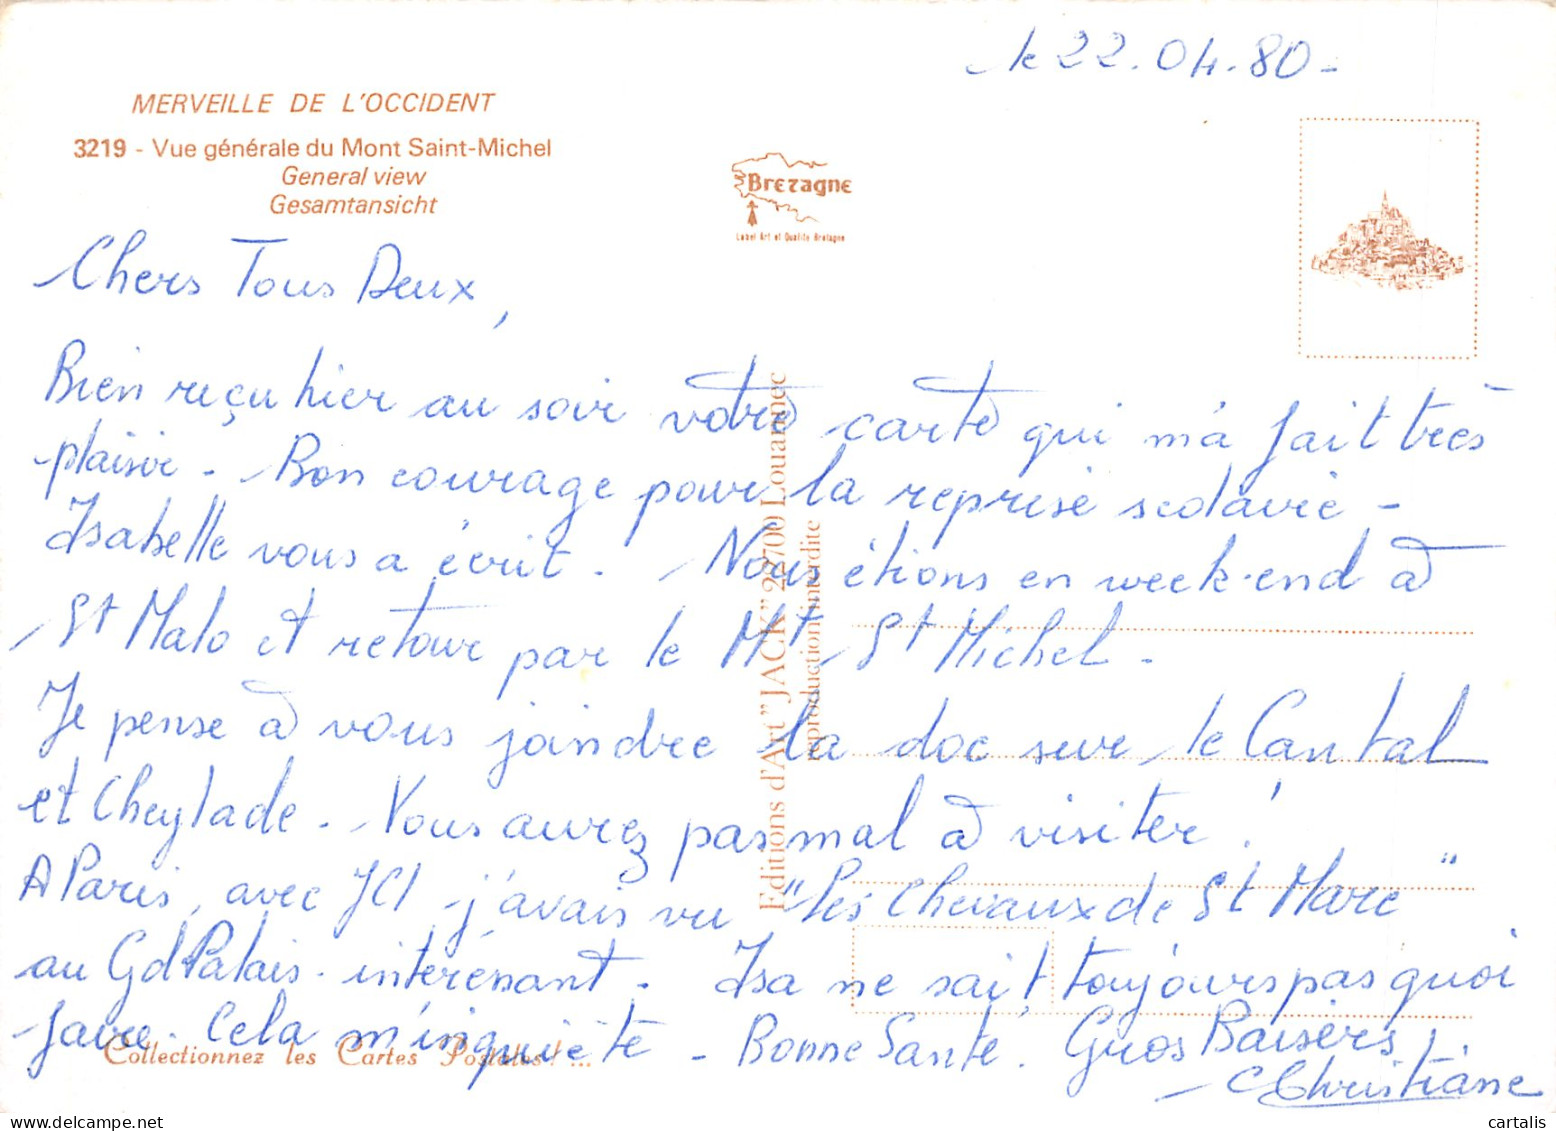 le 22.04.80-
MERVEILLE DE L'OCCIDENT
3219 - Vue générale du Mont Saint-Michel
General view
Gesamtansicht
Breizagne
Label Art et Qualité Bretagne
Chers Tous Deux,
Bien reçu hier au soir votre carte qui m'a fait très
plaisir - Bon courage pour la reprise scolaire -
Isabelle vous a écrit. Nous étions en week-end à
St Malo et retour par le Mt St Michel -
Je pense à vous joindre la doc sur le Cantal
et Cheylade. Vous aurez pas mal à visiter !
A Paris, avec JCl j'avais vu "Les Chevaux de St Marc"
au Gd Palais - intéressant. Isa ne sait toujours pas quoi
faire. Cela m'inquiète - Bonne Santé. Gros Baisers,
Christiane
Editions d'Art "JACK" 22700 Louannec
reproduction interdite
Collectionnez les Cartes Postales ! ...
cartalis